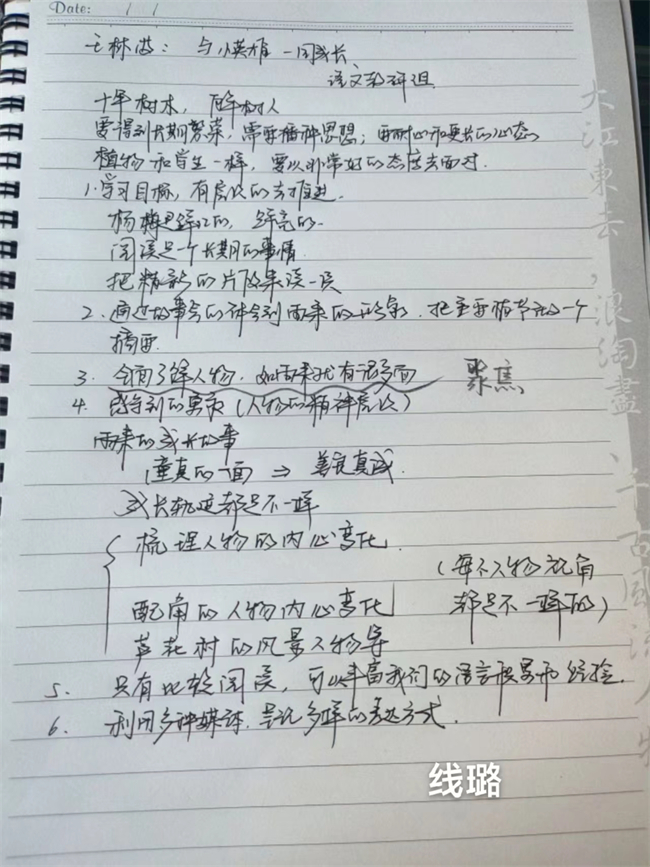 Date: / /
王林波：与小英雄一同成长
语文教研组
十年树木，百年树人
要得到长期繁荣，需要播种思想；要耐心和更长的心态
植物和学生一样，要以非常好的态度去面对.
1.学习目标，有层次的去推进.
杨梅是鲜红的，鲜亮的
阅读是一个长期的事情
把精彩的片段来读一读
2.通过故事会的体会到雨来的形象.把主要情节记一个
摘要
3.全面了解人物，如雨来就有很多面 聚焦
4.感受到的要点（人物的精神层次）
雨来的成长故事
童真的一面 ⇒ 善良真诚.
成长轨迹都是不一样
梳理人物的内心变化
（每个人物视角
配角的人物内心变化 都是不一样的）
芦花村的风景人物等
5. 只有比较阅读，可以丰富我们的语言积累和经验.
6. 利用多种媒体.尝试多样的表达方式.
大江東去，浪淘盡 千古風流人物
线璐